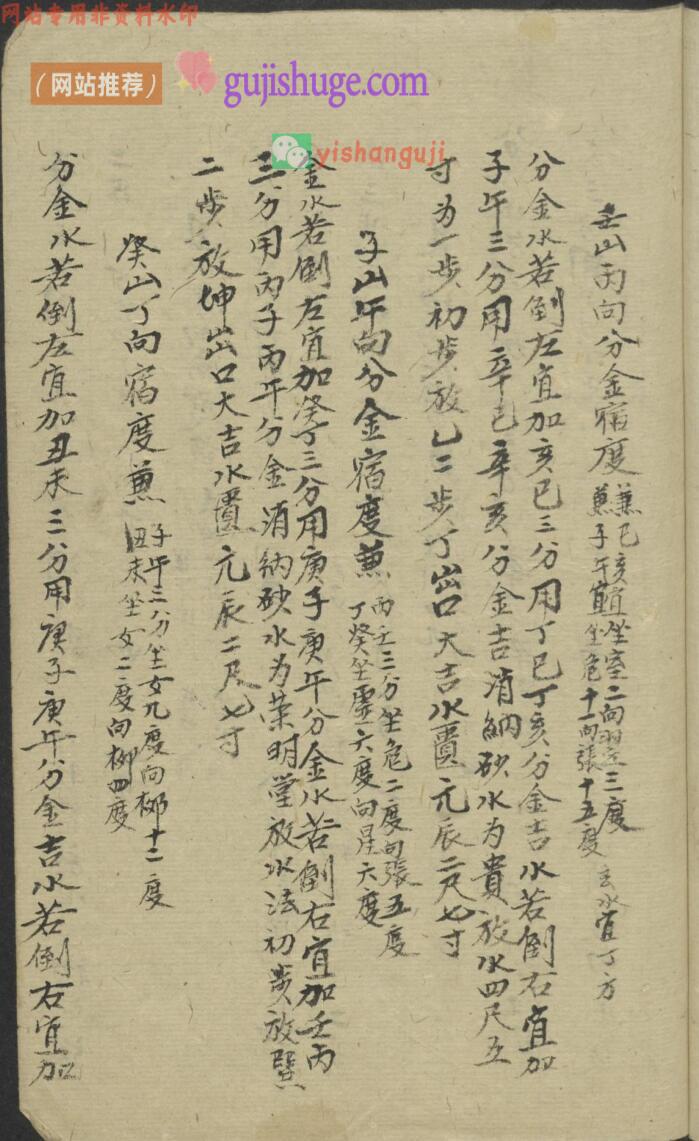 网站专用非资料水印
（网站推荐） gujishuge.com
yishanguji
壬山丙向分金宿度 兼巳亥宜坐室二向翌三度 玄水宜丁方
兼子午宜坐危十一向張十五度
分金水若倒左宜加亥巳三分用丁巳丁亥分金吉水若倒右宜加
子午三分用辛巳辛亥分金吉消納砂水为貴放水四尺五
寸为一步初步放乙二步丁出口大吉水置元辰二尺七寸
子山午向分金宿度兼 丙壬三分坐危二度向張五度
丁癸坐虛六度向星六度
金水若倒左宜加癸丁三分用庚子庚午分金水若倒右宜加壬丙
三分用丙子丙午分金消納砂水为荣明堂放水法初步放巽
二步放坤出口大吉水置元辰二尺七寸
癸山丁向宿度兼 子午三分坐女九度向柳十二度
丑未坐女二度向柳四度
分金水若倒左宜加丑未三分用庚子庚午分金吉水若倒右宜加